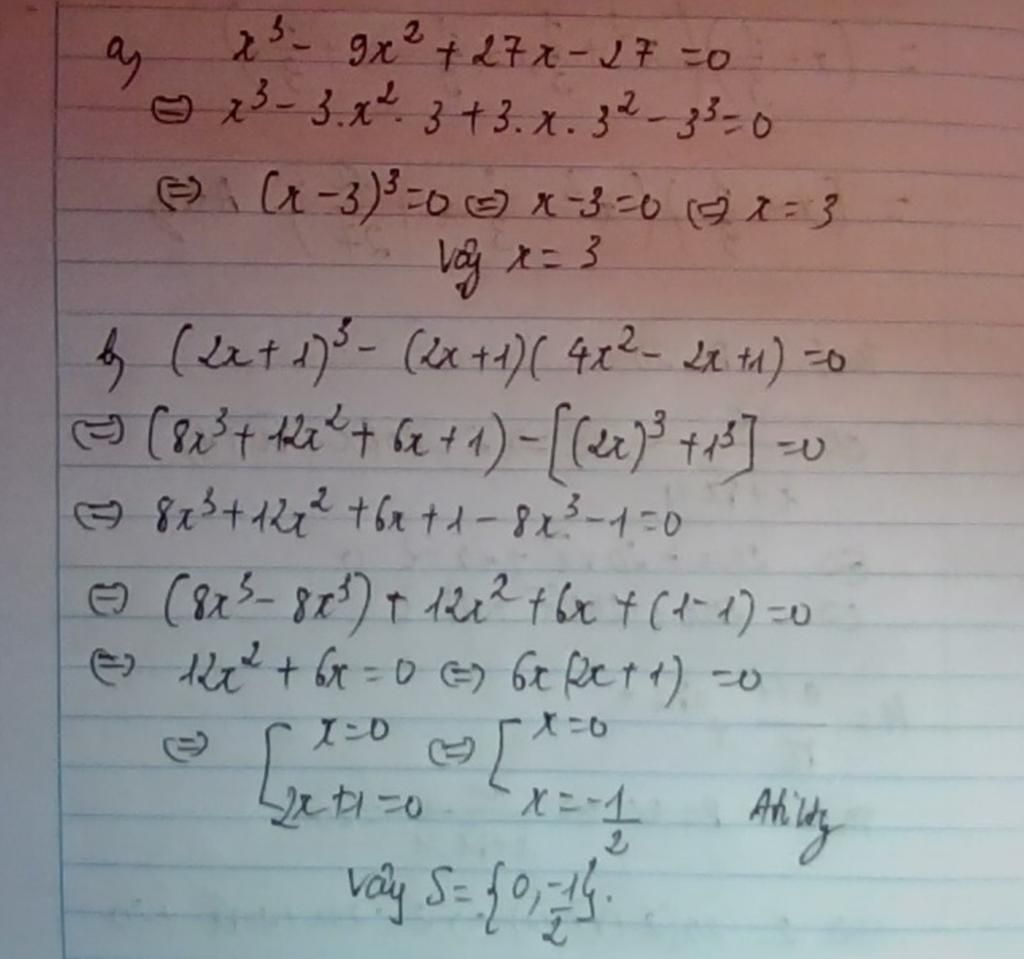 a) x³ - 9x² + 27x - 27 = 0
⇔ x³ - 3.x². 3 + 3. x. 3² - 3³ = 0
⇔ (x - 3)³ = 0 ⇔ x - 3 = 0 ⇔ x = 3
Vậy x = 3
b) (2x + 1)³ - (2x + 1)( 4x² - 2x + 1) = 0
⇔ (8x³ + 12x² + 6x + 1) - [(2x)³ + 1³] = 0
⇔ 8x³ + 12x² + 6x + 1 - 8x³ - 1 = 0
⇔ (8x³ - 8x³) + 12x² + 6x + (1 - 1) = 0
⇔ 12x² + 6x = 0 ⇔ 6x (2x + 1) = 0
⇔ [ x = 0 ⇔ [ x = 0
2x + 1 = 0 x = -1/2
Vậy S = {0, -1/2}.